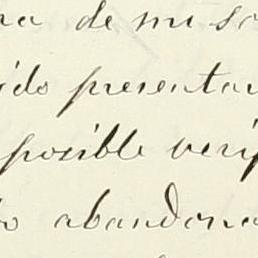 ra de mi so
ido presentar
posible veri
do abandona